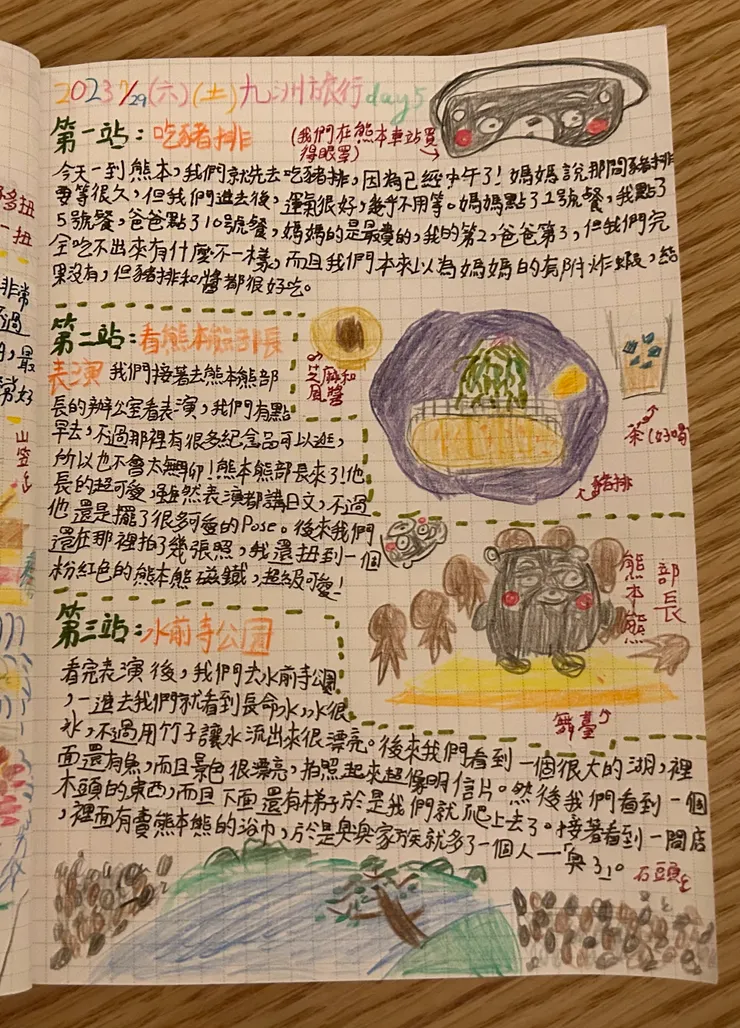 2023 7/29(六)(土)九洲旅行day5
第一站:吃豬排
(我們在熊本車站買
得眼罩)
今天一到熊本,我們就先去吃豬排,因為已經中午了!媽媽說那間豬排
要等很久,但我們進去後,運氣很好,幾乎不用等。媽媽點了1號餐,我點了
5號餐,爸爸點了10號餐,媽媽的是最貴的,我的第2,爸爸第3,但我們完
全吃不出來有什麼不一樣,而且我們本來以為媽媽的有附炸蝦,結
果沒有,但豬排和醬都很好吃。
第二站:看熊本熊部長
表演 我們接著去熊本熊部
長的辦公室看表演,我們有點
早去,不過那裡有很多紀念品可以逛,
所以也不會太無聊!熊本熊部長來了!他
長的超可愛,雖然表演都講日文,不過
他還是擺了很多可愛的Pose。後來我們
還在那裡拍了幾張照,我還扭到一個
粉紅色的熊本熊磁鐵,超級可愛!
芝麻和
風醬
茶(好喝)
豬排
熊本熊
部長
舞臺
第三站:水前寺公園
看完表演後,我們去水前寺公園
,一進去我們就看到長命水,水很
冰,不過用竹子讓水流出來很漂亮。後來我們看到一個很大的湖,裡
面還有魚,而且景色很漂亮,拍照起來超像明信片。然後我們看到一個
木頭的東西,而且下面還有梯子於是我們就爬上去了。接著看到一間店
,裡面有賣熊本熊的浴巾,於是臭臭家族就多了一個人—「臭3」。
石頭
多扭
一扭
非常
過
最
常好
山笠